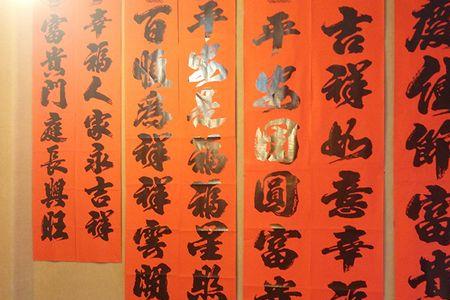 慶佳節富貴
吉祥如意幸福
平安團圓富貴
平安是福福星照
百順為祥祥雲開
幸福人家永吉祥
富貴門庭長興旺